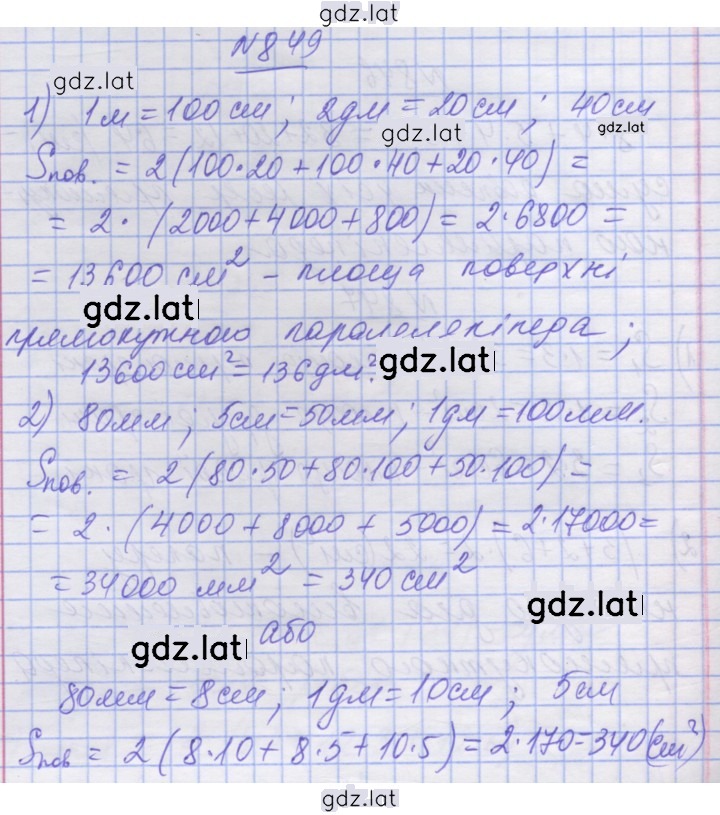 gdz.lat
N849
gdz.lat
1) 1м = 100 см; 2дм = 20 см; 40 см
gdz.lat gdz.lat
Sпов. = 2(100·20+100·40+20·40) =
= 2·(2000+4000+800) = 2·6800 =
= 13600 см² – площа поверхні
gdz.lat
gdz.lat
прямокутного паралелепіпеда;
13600 см² = 136 дм².
gdz.lat
2) 80мм; 5см=50мм; 1дм=100мм.
Sпов. = 2(80·50+80·100+50·100) =
= 2·(4000+8000+5000) = 2·17000 =
= 34000 мм² = 340 см²
gdz.lat
gdz.lat
або
80мм=8см; 1дм=10см; 5см
Sпов = 2(8·10+8·5+10·5) = 2·170=340(см²)
gdz.lat